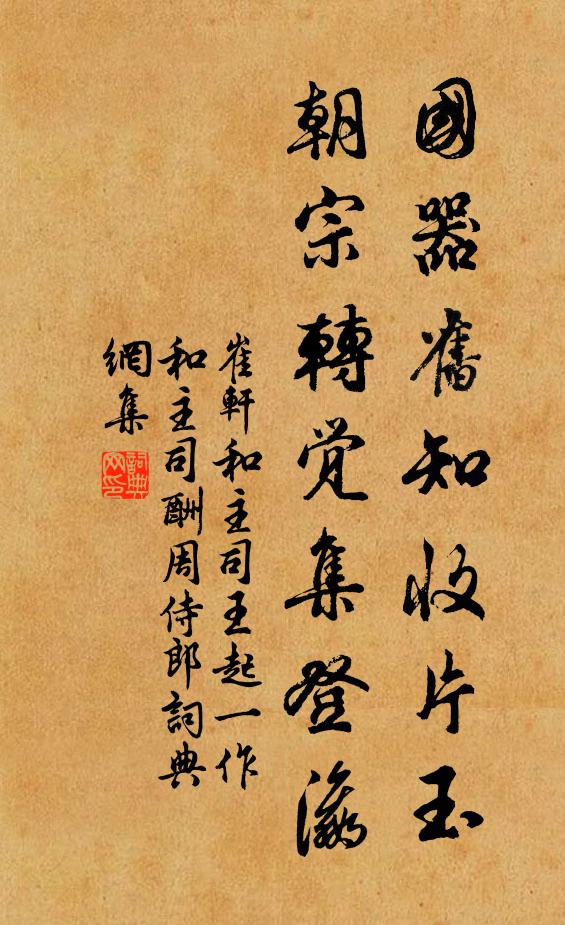 國器舊知收片玉
朝宗轉覺集登瀛
崔軒和主司王起一作
和主司酬周侍郎詞典
網集
詞典網印